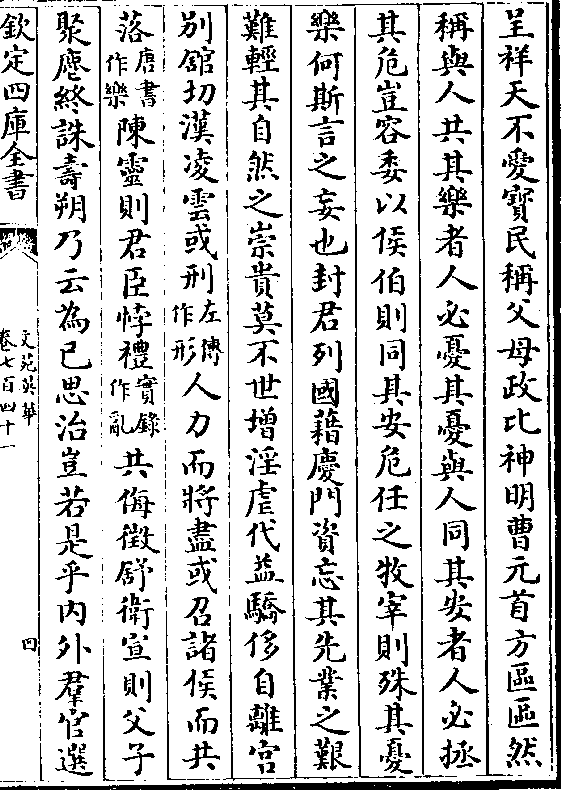 呈祥天不愛寳民稱父母政比神明曹元首方區區然
稱與人共其樂者人必憂其憂與人同其安者人必拯
其危豈容委以侯伯則同其安危任之牧宰則殊其憂
樂何斯言之妄也封君列國藉慶門資忘其先業之艱
難輕其自然之崇貴莫不世增淫虐代益驕侈自離宫
别舘切漢凌雲或刑左傳作形人力而將盡或召諸侯而共
落唐書作樂陳靈則君臣悖禮實錄作亂共侮徵舒衛宣則父子
聚麀終誅壽朔乃云為已思治豈若是乎内外羣官選
欽定四庫全書
文苑英華
卷七百四十一
四